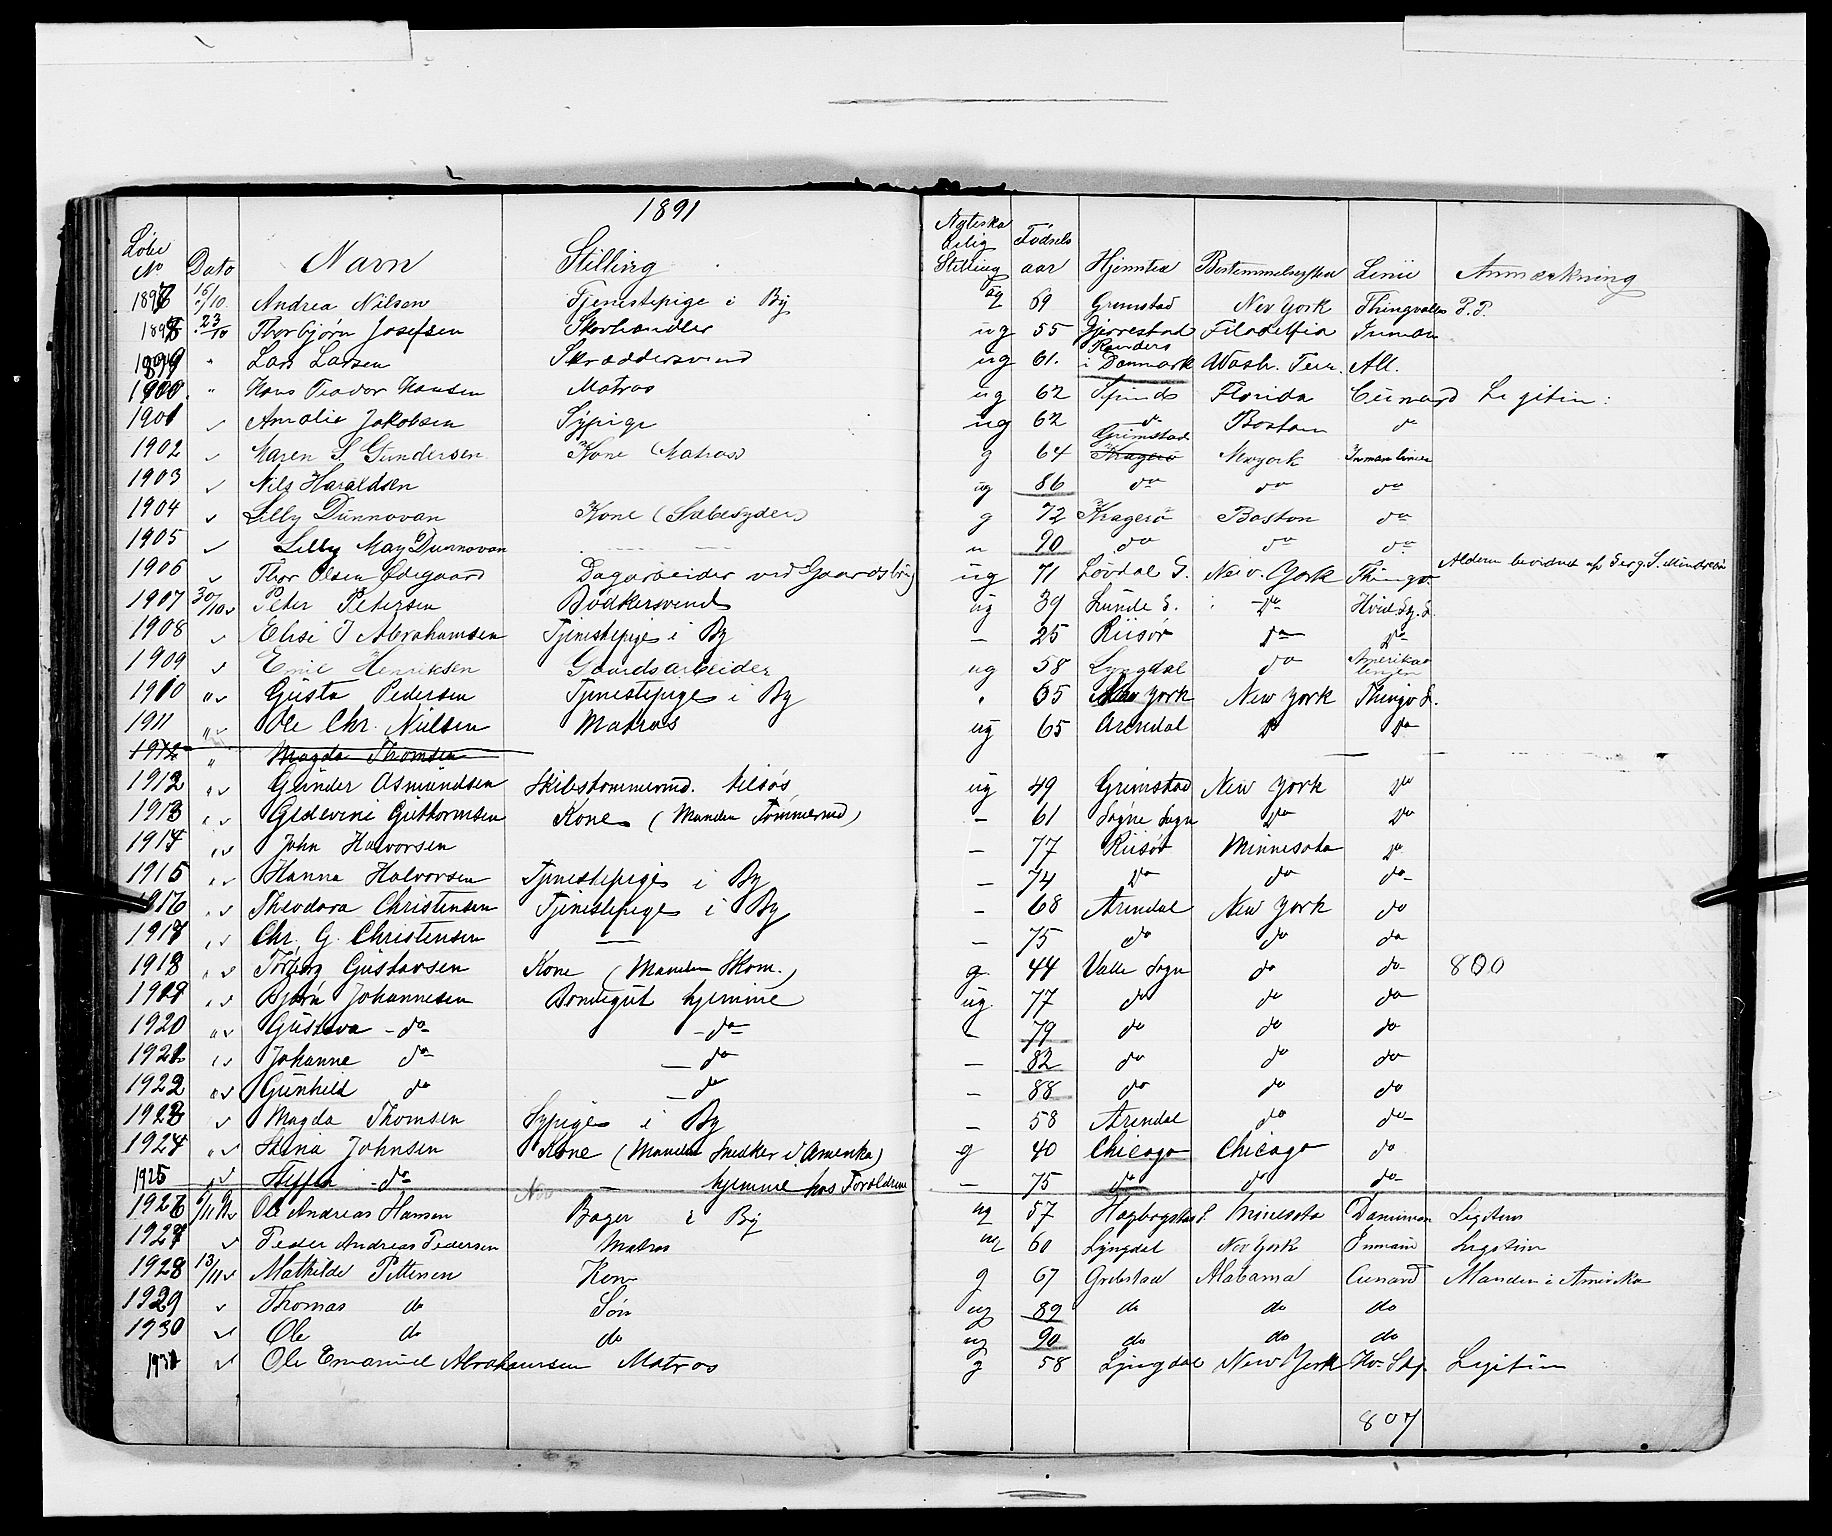 1891
Løbe No Dato Navn Stilling Ægteskabelig Stilling Fødsels aar Hjemsted Bestemmelsessted Linie Anmærkning
1897 16/10 Andrea Nilsen Tjenestepige i By ug 69 Grimstad New York Thingvalla P.P.
1898 23/10 Thorbjørn Josefsen Skohandler ug 55 Gjerrestad Filadelfia Inman
1899 " Lars Larsen Skræddersvend ug 61. Randers i Danmark Wash. Terr. All.
1900 " Hans Teodor Hansen Matros ug 62 Spinds Florida Cunard Legitim:
1901 Amalie Jakobsen Sypige ug 62 do Boston do
1902 Maren S. Gundersen Kone (Matros) g 64 Grimstad Kragerø Newyork Inman linie
1903 Nils Haraldsen ug 86 do do do
1904 Lilly Dunnovan Kone (Sæbesyder) g 72 Kragerø Boston do
1905 Lilly May Dunnovan u 90 do do do
1906 Thor Olsen Ødegaard Dagarbeider ved Gaardsbrug ug 71 Løvdal S. New York Thingv. Alderen bevidnet af
1907 30/10 Peter Petersen Bødkersvend ug 39 Lunde S. do Hvid St. L.
1908 Elise J Abrahamsen Tjenestepige i By — 25 Riisør do do
1909 Emil Henriksen Gaardsarbeider ug 58 Lyngdal do Amerikalinjen
1910 " Gusta Pedersen Tjenestepige i By " 65 New York New York Thingv L.
1911 " Ole Chr. Nielsen Matros ug 65 Arendal do do
1912 " Magda Thomsen — —
1912 " Gunder Asmundsen Skibstømmermd. ug 49 Grimstad New York do
1913 " Gudevine Guthormsen Kone (Manden Tømmermd) — 61 Søgne Sogn do do
1914 " John Halvorsen — 77 Riisør Minnesota do
1915 " Hanna Halvorsen Tjenestepige i By — 74 do do do
1916 " Theodora Christensen Tjenestepige i By — 68 Arendal New York do
1917 " Chr. G. Christensen — — 75 do do do
1918 " Torborg Gustavsen Kone (Manden Skom.) g. 44 Valle Sogn do do 800
1919 " Bjørn Johannesen Bondegut hjemme ug. 77 do do do
1920 " Gustava -do- -do- — 79 do do do
1921 " Johanne do — do — 82 do do do
1922 " Gunhild do — do — 88 do do do
1923 " Magda Thomsen Sypige i By — 58 Arendal do do
1924 " Stina Johnsen Kone (Manden Snedker i Amerika) g 40 Chicago Chicago do
1925 " Steffen -do- — hjemme hos Forældrene — 75 do do do
1926 Ole Andreas Hansen Bager i By ug 57 Hægbogstad S. Minesota Dominion Legitim
1927 Peder Andreas Pedersen Matros ug 60 Lyngdal New York Inman Legitim
1928 13/11 Mathilde Pettersen Kone g 67 Grebstad Alabama Cunard Manden i Amerika
1929 Thomas do Søn ug 89 do do do
1930 Ole do do ug 90 do do do
1931 Ole Emanuel Abrahamsen Matros g 58 Lyngdal New York Hv. Stj. Legitim
807